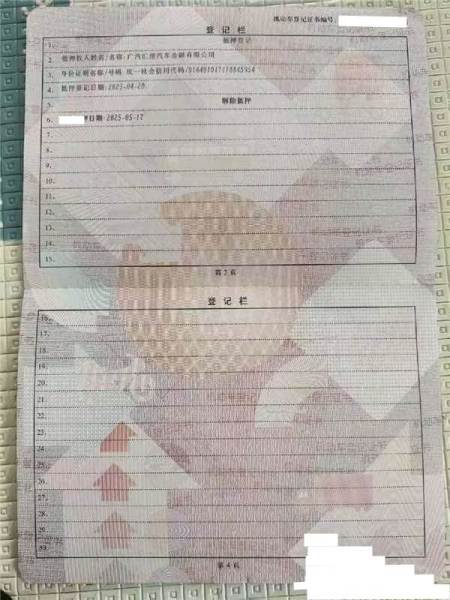 机动车登记证书编号:
登 记 栏
1. 抵押登记
2. 抵押权人姓名/名称:广汽汇理汽车金融有限公司
3. 身份证明名称/号码:统一社会信用代码/
4. 抵押登记日期:2025-04-20
5. 解除抵押
6. 日期:2025-05-17
7.
8.
9.
10.
11.
12.
13.
14.
15.
第 3 页
登 记 栏
16.
17.
18.
19.
20.
21.
22.
23.
24.
25.
26.
27.
28.
29.
30.
第 4 页